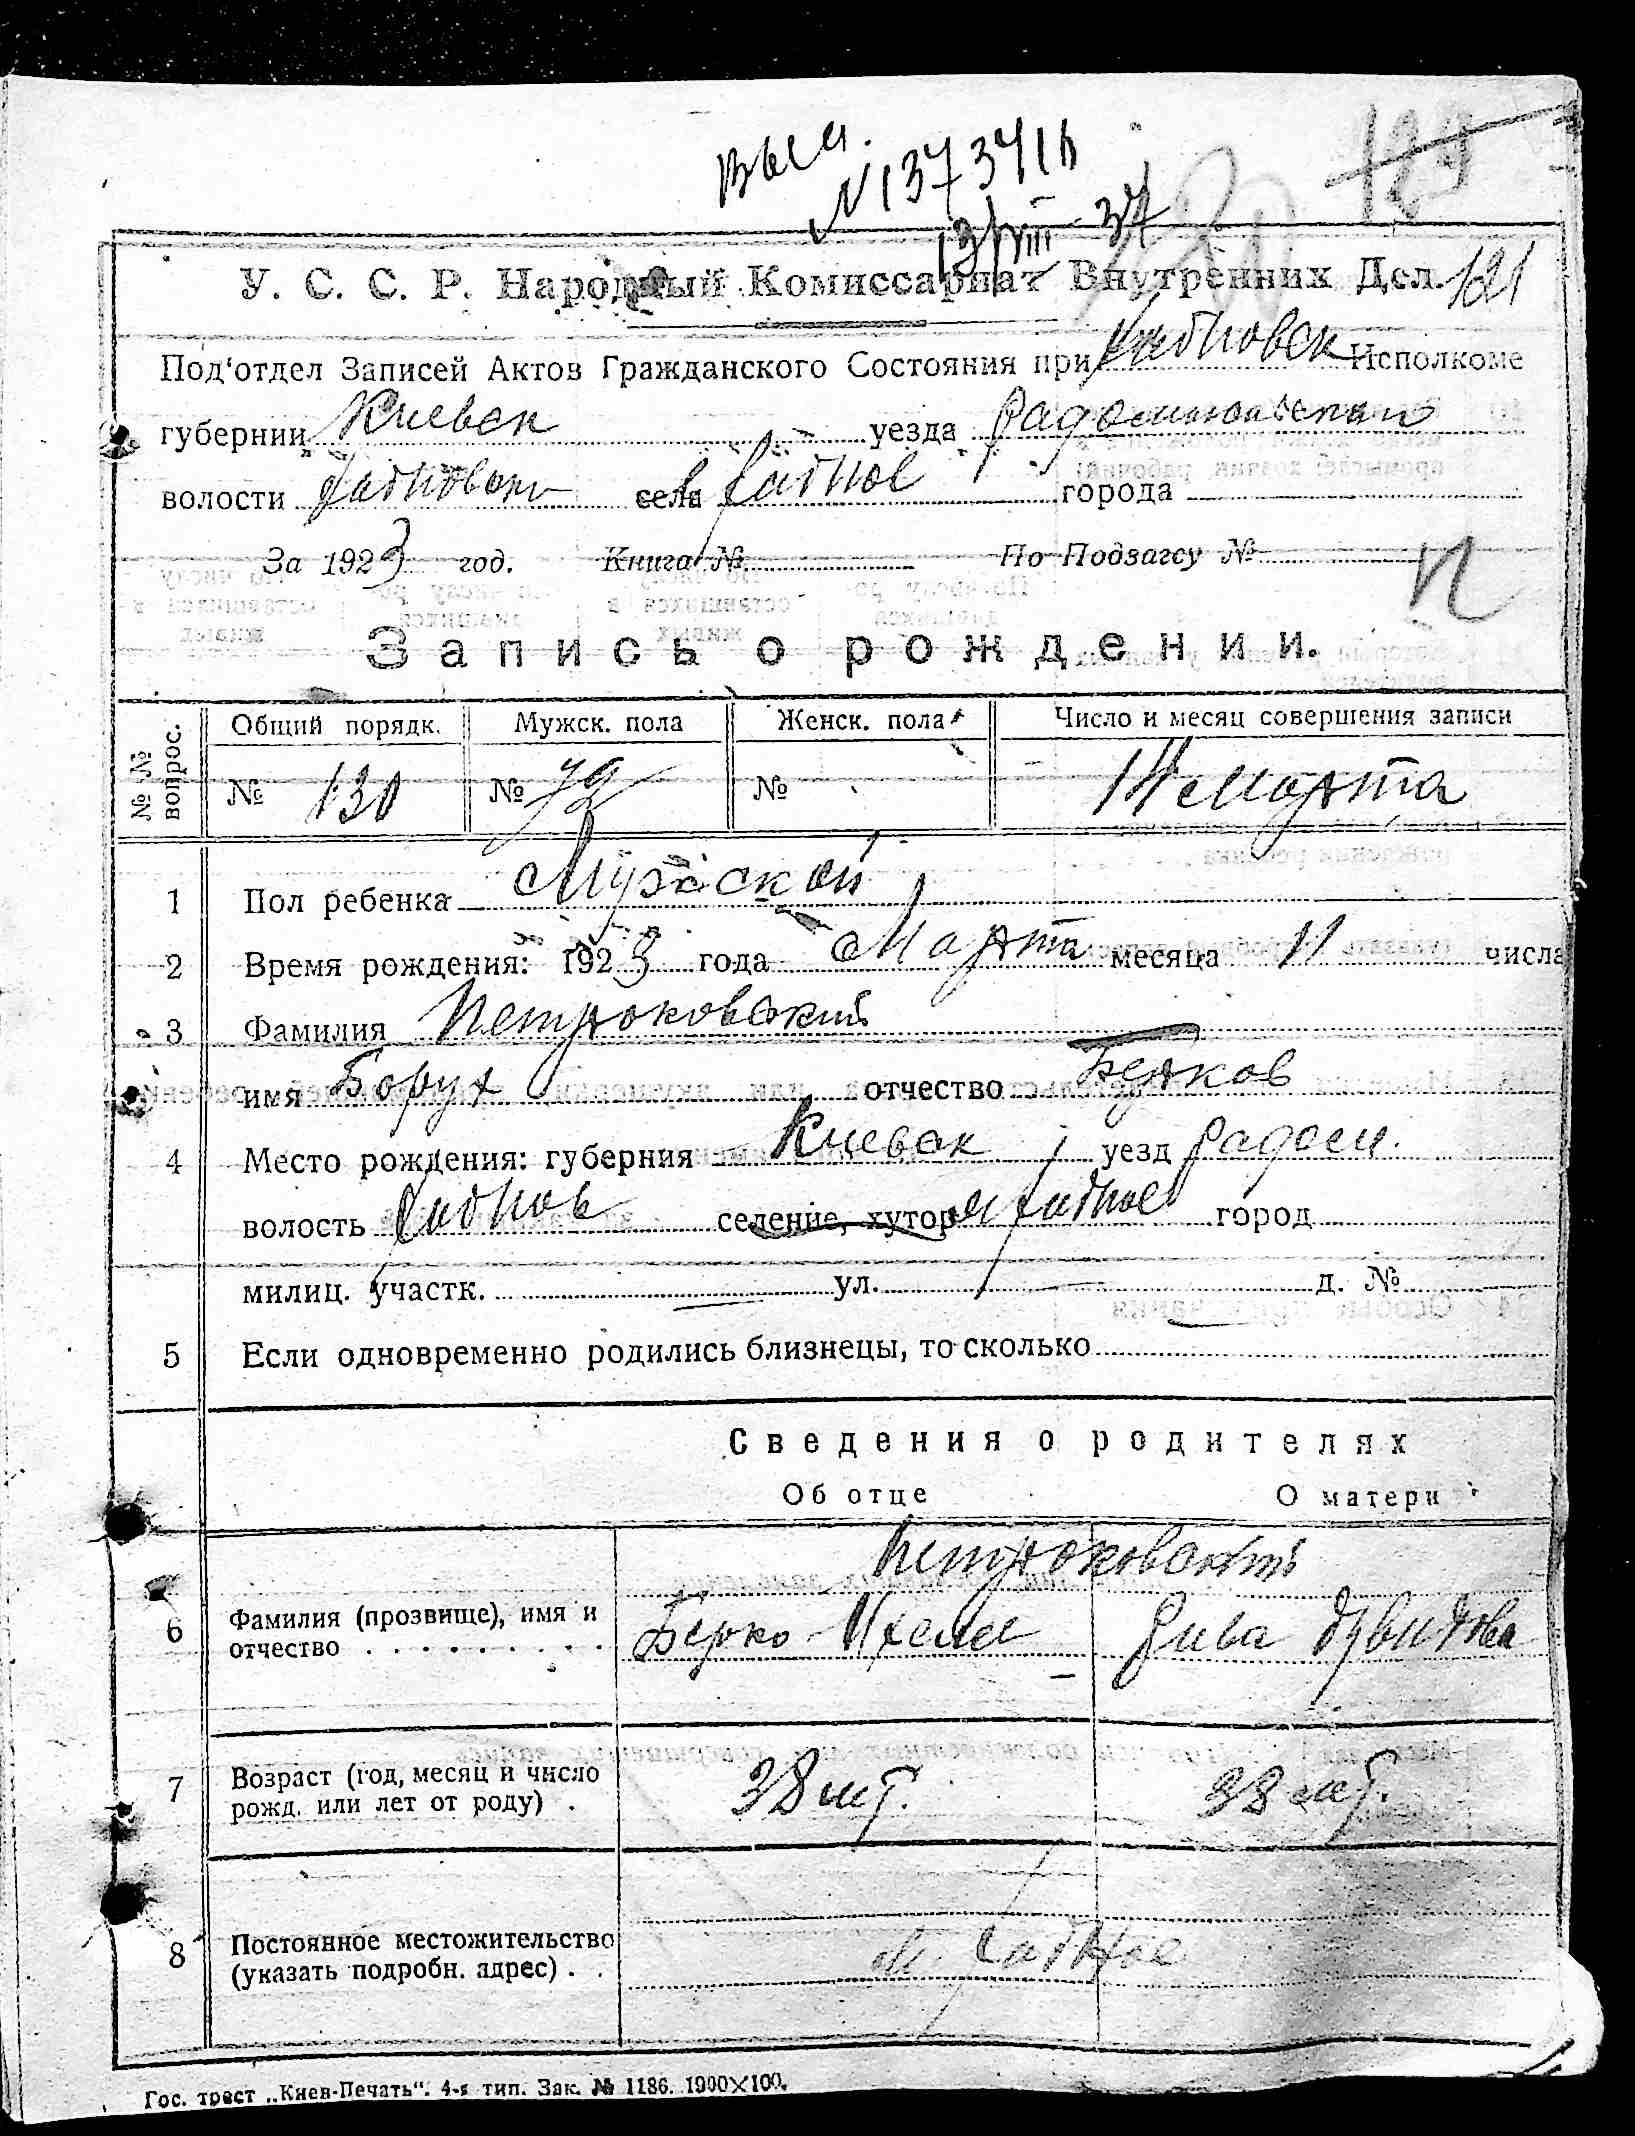 выд.
№ 1373416
13/VIII 37
121
У. С. С. Р. Народный Комиссариат Внутренних Дел.
Под‘отдел Записей Актов Гражданского Состояния при Хабновск Исполкоме
губернии Киевск уезда Радомысльского
волости Хабновск села Хабное города
За 1923 год. Книга № По Подзагсу №
Запись о рождении.
№№ вопрос. Общий порядк. Мужск. пола Женск. пола Число и месяц совершения записи
№ 130 № 72 № 14 марта
1 Пол ребенка Мужской
2 Время рождения: 1923 года Марта месяца 11 числа
3 Фамилия Петроковский
имя Борух отчество Берков
4 Место рождения: губерния Киевск уезд Радом.
волость Хабнов селение, хутор м Хабное город
милиц. участк. ул. д. №
5 Если одновременно родились близнецы, то сколько
Сведения о родителях
Об отце О матери
Петроковские
6 Фамилия (прозвище), имя и
отчество Берко Ихелев Рива Давидова
7 Возраст (год, месяц и число
рожд. или лет от роду) 38 лет. 38 лет.
8 Постоянное местожительство
(указать подробн. адрес) м. Хабное
Гос. трест „Киев-Печать“. 4-я тип. Зак. № 1186. 1900×100.